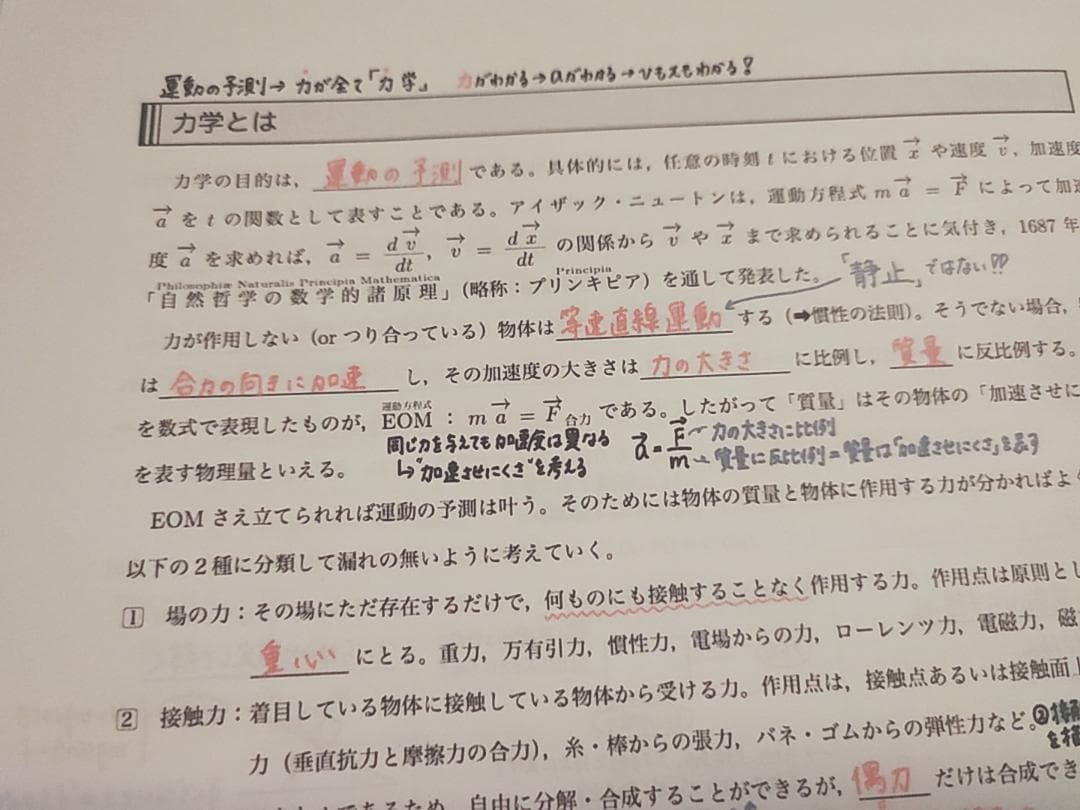 運動の予測→力が全て「力学」 力がわかる→aがわかる→vもxもわかる?
力学とは
力学の目的は,運動の予測である。具体的には,任意の時刻 t における位置 x→ や速度 v→,加速度
a→ を t の関数として表すことである。アイザック・ニュートンは,運動方程式 m a→ = F→ によって加速
度 a→ を求めれば,a→ = dv→/dt, v→ = dx→/dt の関係から v→ や x→ まで求められることに気付き,1687 年
Philosophiæ Naturalis Principia Mathematica Principia
「自然哲学の数学的諸原理」(略称:プリンキピア)を通して発表した。「静止」ではない!?
力が作用しない(or つり合っている)物体は等速直線運動する(➡慣性の法則)。そうでない場合,
は合力の向きに加速し,その加速度の大きさは力の大きさに比例し,質量に反比例する。
運動方程式
を数式で表現したものが,EOM : m a→ = F→合力 である。したがって「質量」はその物体の「加速させに
同じ力を与えても加速度は異なる a→ = F→/m 力の大きさに比例
を表す物理量といえる。 ↳"加速させにくさ"を考える 質量に反比例=質量は「加速させにくさ」を表す
EOM さえ立てられれば運動の予測は叶う。そのためには物体の質量と物体に作用する力が分かればよ
以下の2種に分類して漏れの無いように考えていく。
1 場の力:その場にただ存在するだけで,何ものにも接触することなく作用する力。作用点は原則とし
重心にとる。重力,万有引力,慣性力,電場からの力,ローレンツ力,電磁力,磁
2 接触力:着目している物体に接触している物体から受ける力。作用点は,接触点あるいは接触面上
力(垂直抗力と摩擦力の合力),糸・棒からの張力,バネ・ゴムからの弾性力など。②接触
であるため,自由に分解・合成することができるが,偶力だけは合成でき